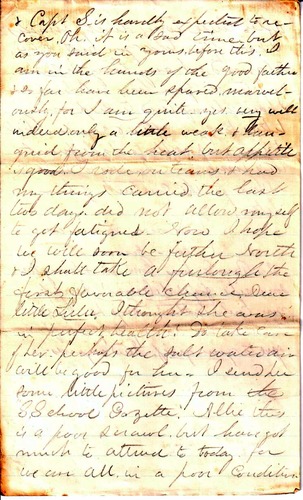 & Capt S. is hardly expected to re-
cover, Oh, it is a sad time, but
as you said in yours, before this. I
am in the hands of the good father
& so far have been spared marvel-
ously, for I am quite—yes very well
indeed, only a little weak & lan-
guid from the heat, but appetite
good. I rode in teams & had
my things carried the last
two days, did not allow myself
to get fatigued. Now I hope
we will soon be further North
& I shall take a furlough the
first favorable chance, Dear
little I thought she was
in perfect health! Do take care
of her. perhaps the salt water air
will be good for her. I send her
some little pictures from the
S School Gazette. Allie this
is a poor scrawl, but have got
much to attend to today, for
we are all in a poor condition.